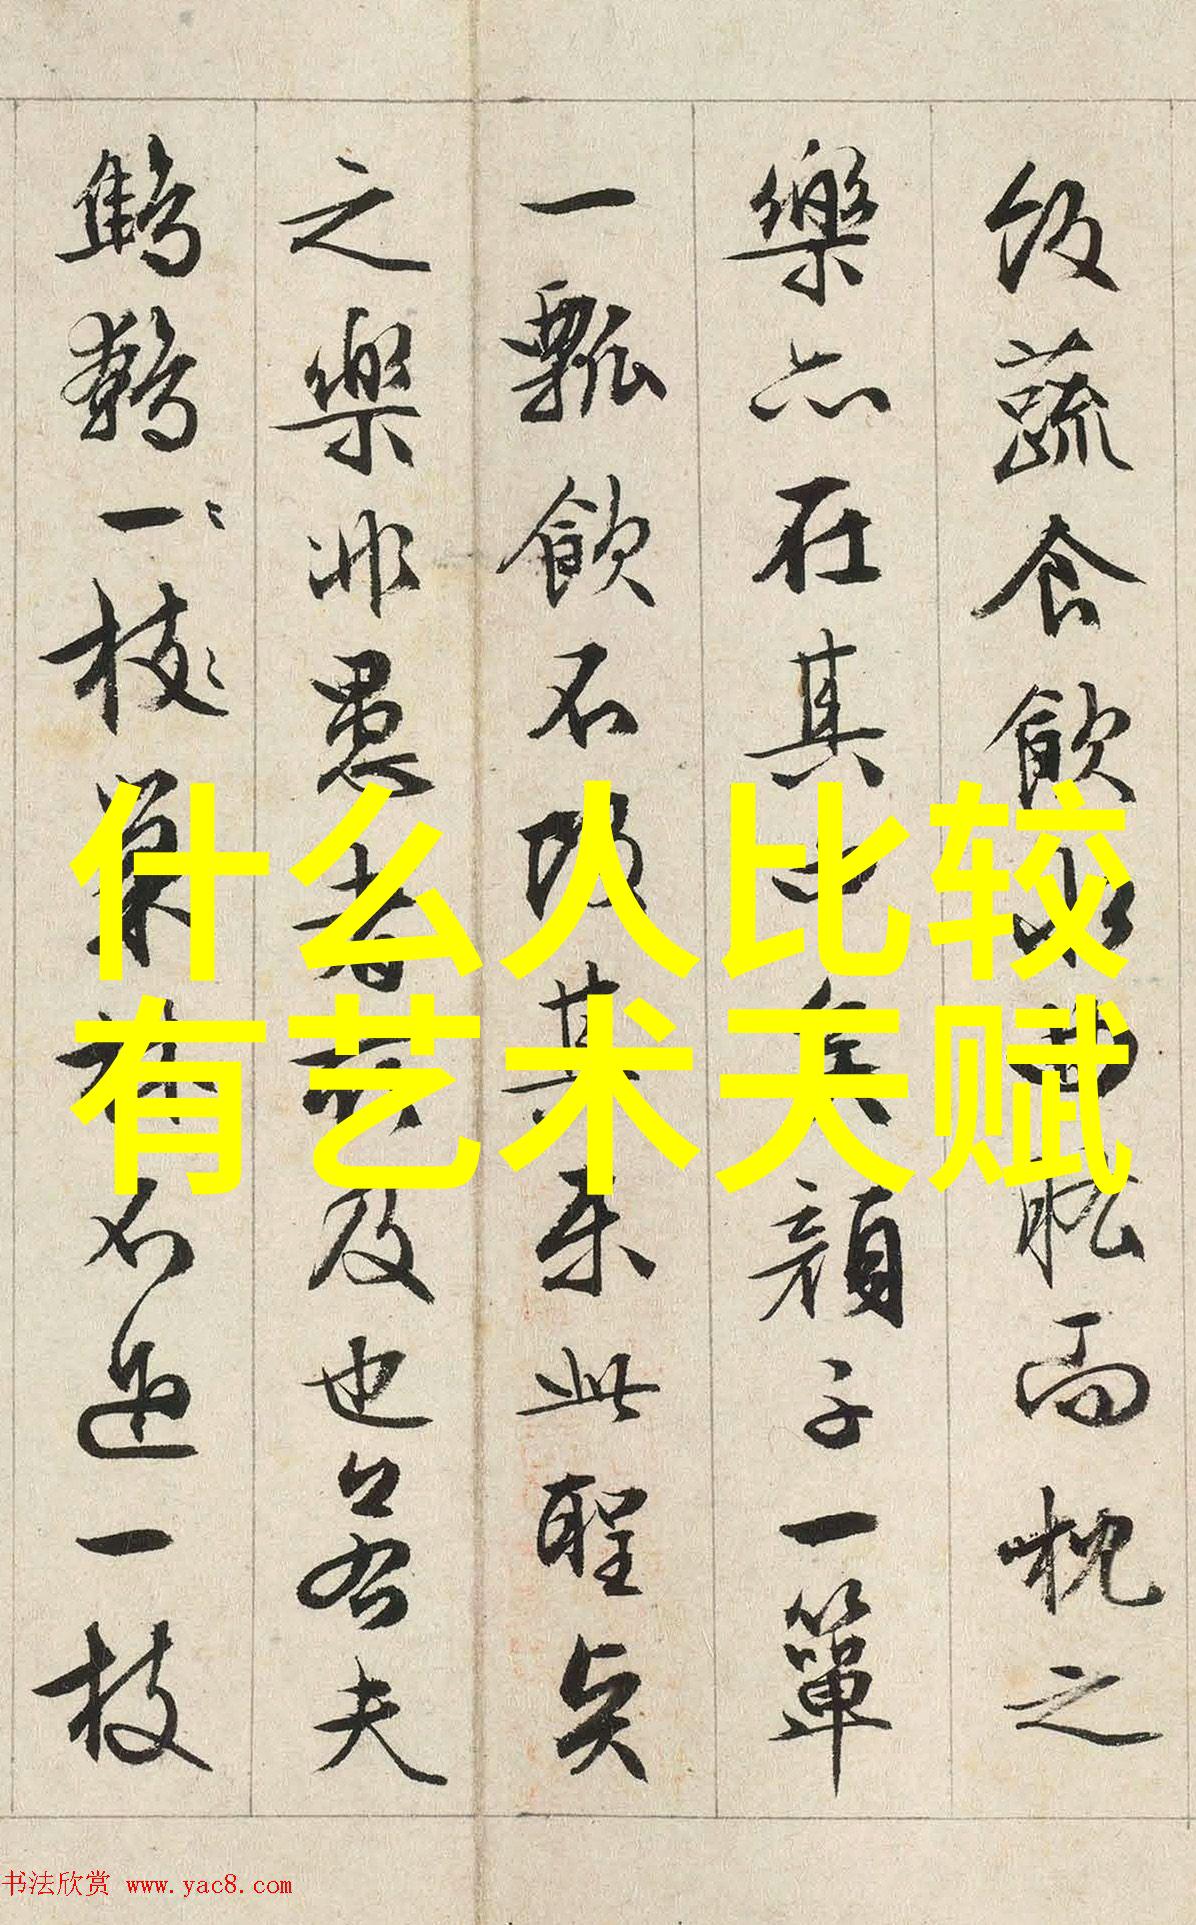 飯蔬食飲水曲肱而枕之
樂亦在其中矣顏子一簞
一瓢飲不改其樂此聖賢
之樂非愚者所及也若夫
鷦鷯一〻枝〻巢林不過一枝
什么人比较
有艺术天赋
书法欣赏 www.yac8.com